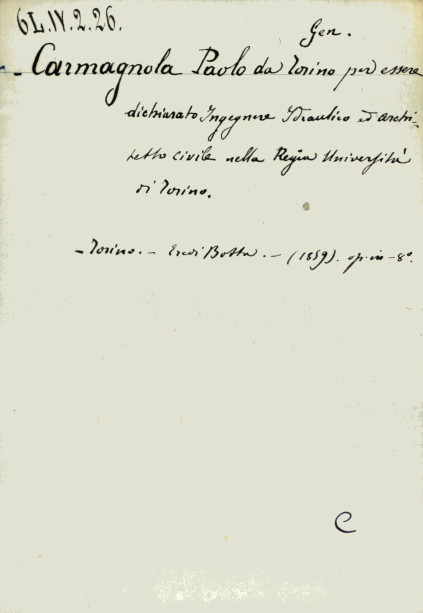 6L.IV.2.26.
Gen.
- Carmagnola Paolo da Torino per essere
dichiarato Ingegnere Idraulico ed archi-
tetto civile nella Regia Università
di Torino.
- Torino. - Eredi Botta. - (1859). op. in - 8°.
C